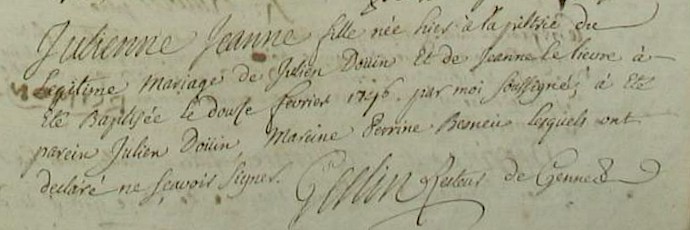 Julienne Jeanne fille née hier à la piltrie du
Legitime mariage de Julien Doüin Et de Jeanne Le lievre à
Eté Baptisée Le douse fevrier 1746. par moi soussigné, à Eté
parein Julien Doüin, Mareine Perrine Besneu lesquels ont
declaré ne sçavoir signer. Recteur de Gennes